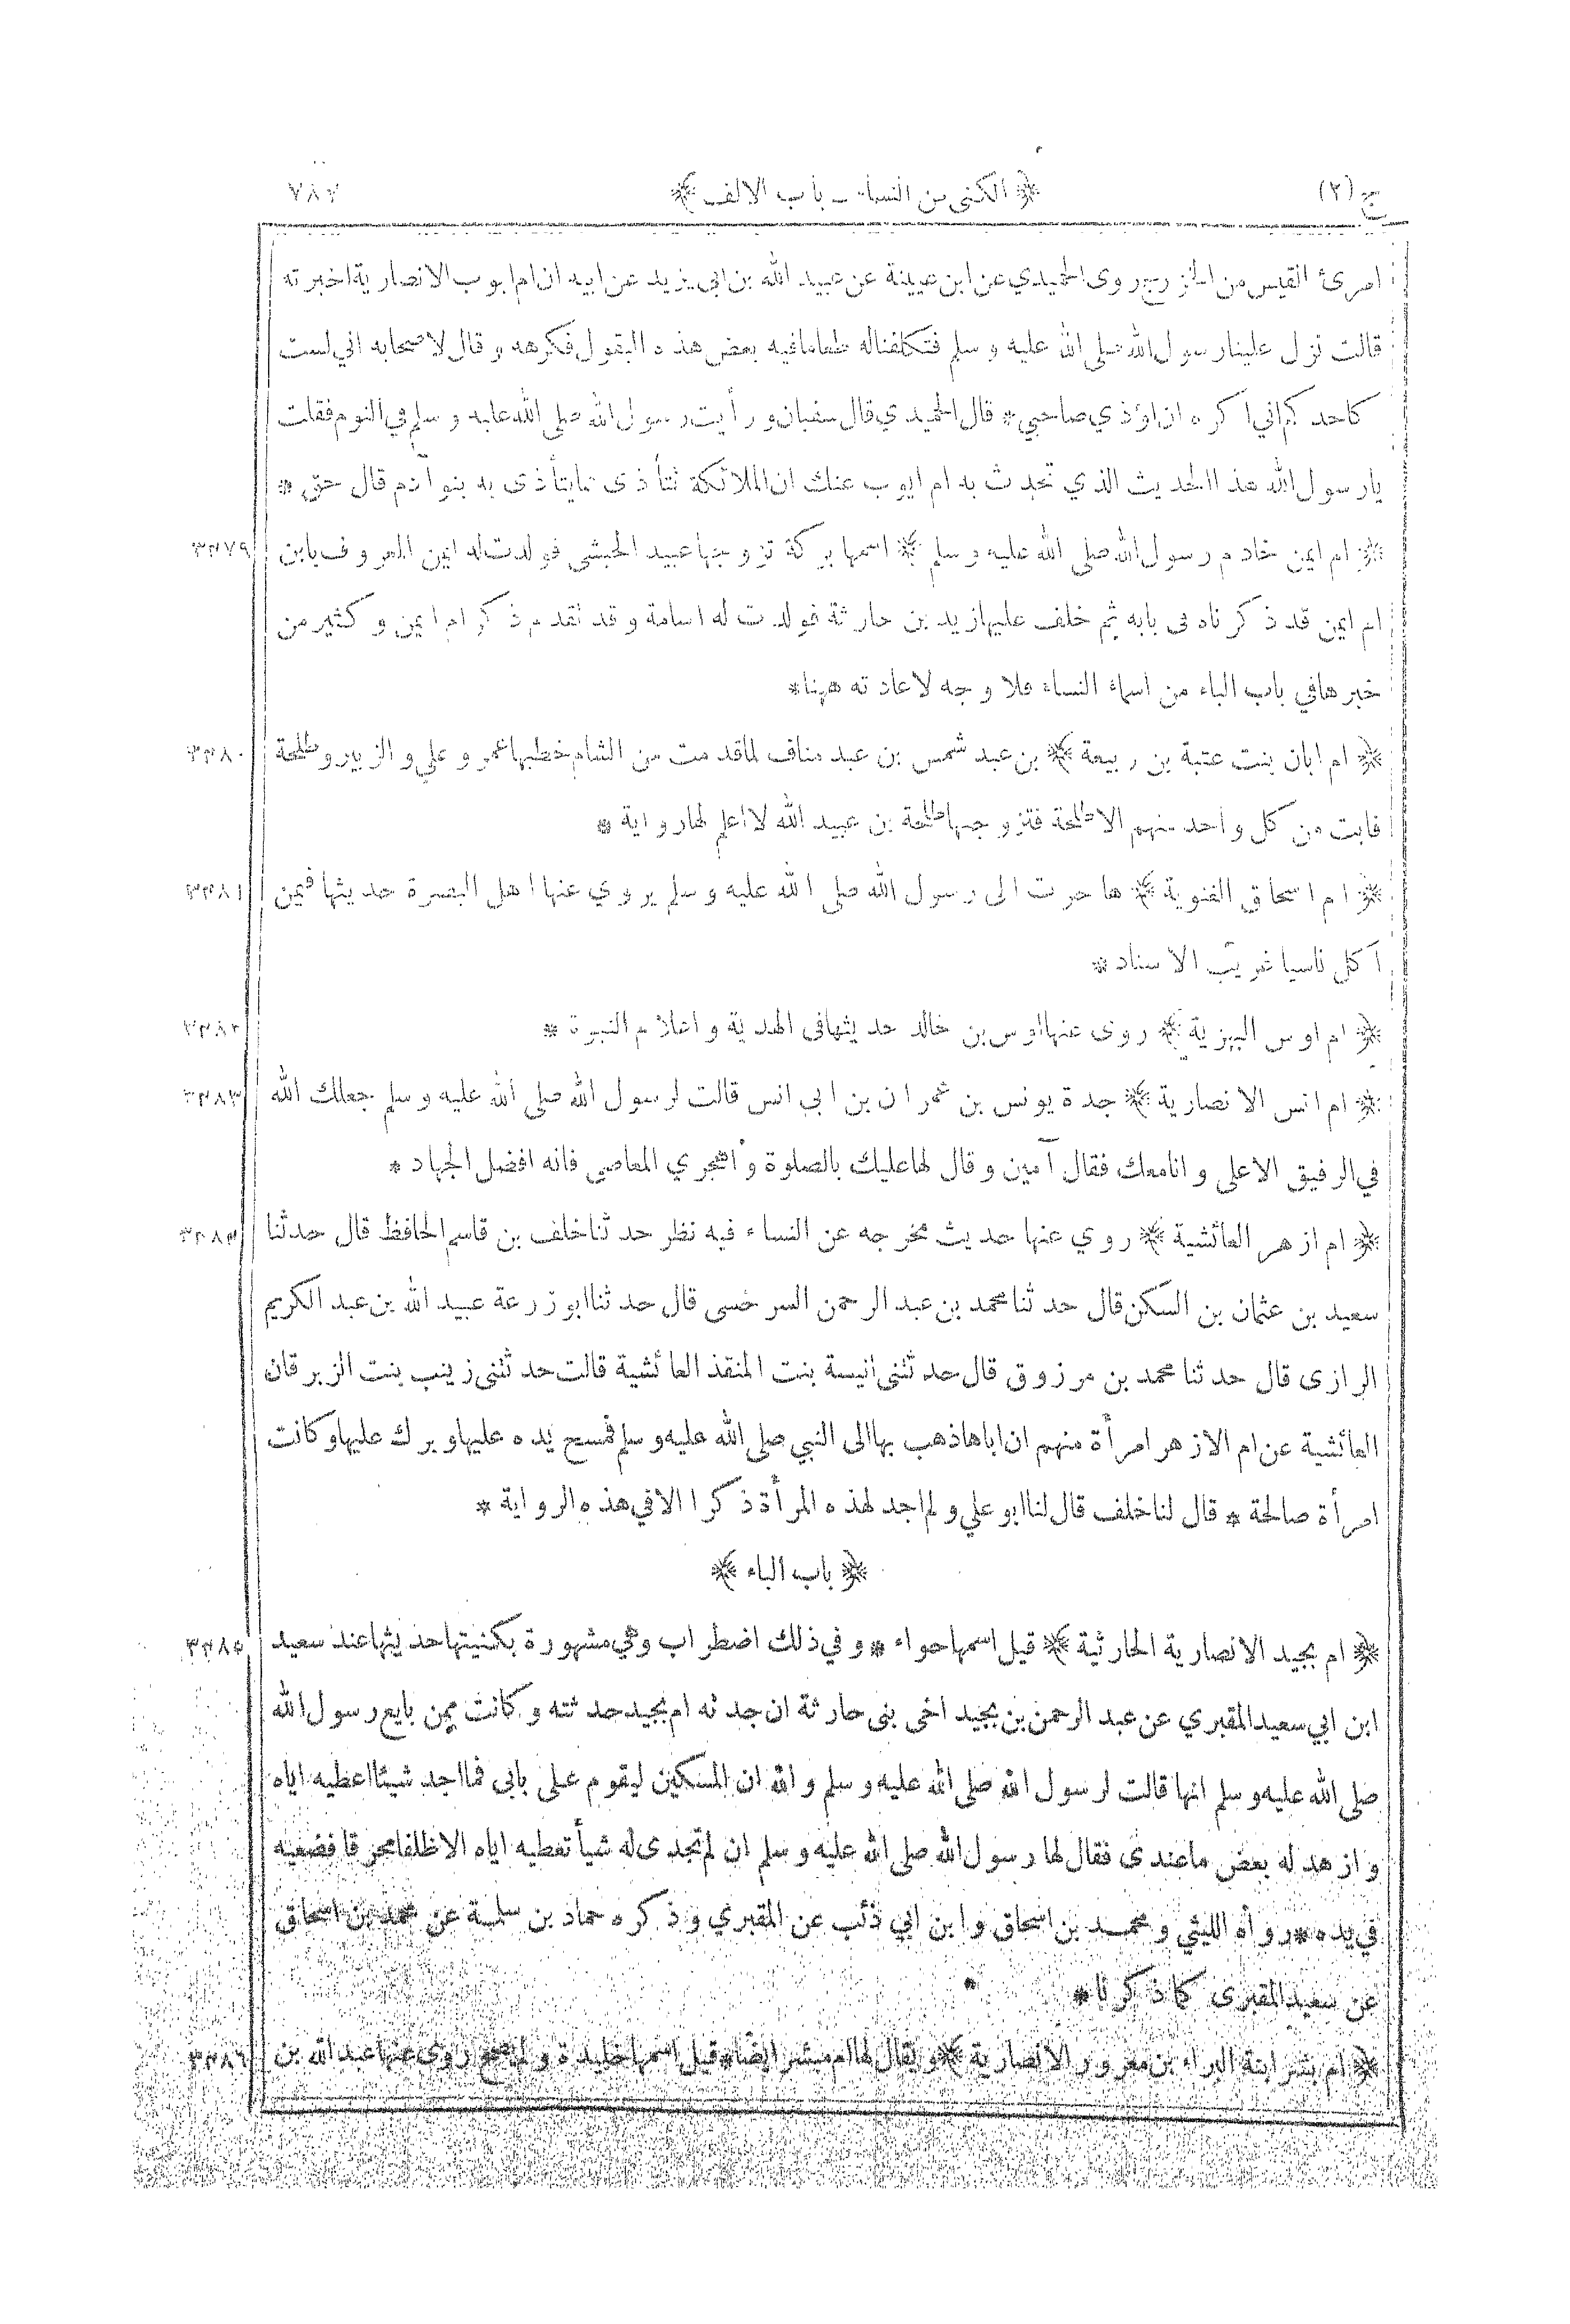 ج (٢) ﴿ الكنى من النساء ـ باب الالف ﴾ ٧٨٣
امرئ القيس من الخزرج روى الحميدي عن ابن عيينة عن عبيد الله بن ابي يزيد عن ابيه ان ام ايوب الانصارية اخبرته
قالت نزل علينا رسول الله صلى الله عليه وسلم فتكلفنا له طعاما فيه بعض هذه البقول فكرهه وقال لاصحابه اني لست
كاحدكم اني اكره ان اوذي صاحبي * قال الحميدي قال سفيان ورأيت رسول الله صلى الله عليه وسلم في النوم فقلت
يارسول الله هذا الحديث الذي تحدث به ام ايوب عنك ان الملائكة تتأذى مما يتأذى به بنو آدم قال حق *
﴿ ام ايمن خادم رسول الله صلى الله عليه وسلم ﴾ اسمها بركة تزوجها عبيد الحبشى فولدت له ايمن المعروف بابن ٣٣٧٩
ام ايمن قد ذكرناه فى بابه ثم خلف عليها زيد بن حارثة فولدت له اسامة وقد تقدم ذكر ام ايمن وكثير من
خبرها في باب الباء من اسماء النساء فلا وجه لاعادته ههنا *
﴿ ام ابان بنت عتبة بن ربيعة ﴾ بن عبد شمس بن عبد مناف لما قدمت من الشام خطبها عمر وعلي والزبير وطلحة ٣٣٨٠
فابت من كل واحد منهم الا طلحة فتزوجها طلحة بن عبيد الله لا اعلم لها رواية *
﴿ ام اسحاق الغنوية ﴾ هاجرت الى رسول الله صلى الله عليه وسلم يروي عنها اهل البصرة حديثها فيمن ٣٣٨١
آكل ناسيا غريب الاسناد *
﴿ ام اوس البهزية ﴾ روى عنها اوس بن خالد حديثها فى الهدية واعلام النبوة * ٣٣٨٢
﴿ ام انس الانصارية ﴾ جدة يونس بن عمران بن ابى انس قالت لرسول الله صلى الله عليه وسلم جعلك الله ٣٣٨٣
في الرفيق الاعلى وانا معك فقال آمين وقال لها عليك بالصلوة واهجري المعاصي فانه افضل الجهاد *
﴿ ام ازهر العائشية ﴾ روي عنها حديث مخرجه عن النساء فيه نظر حدثنا خلف بن قاسم الحافظ قال حدثنا ٣٣٨٤
سعيد بن عثمان بن السكن قال حدثنا محمد بن عبد الرحمن السرخسى قال حدثنا ابو زرعة عبيد الله بن عبد الكريم
الرازى قال حدثنا محمد بن مرزوق قال حدثتنى انيسة بنت المنقذ العائشية قالت حدثتنى زينب بنت الزبرقان
العائشية عن ام الازهر امرأة منهم ان اباها ذهب بها الى النبي صلى الله عليه وسلم فمسح يده عليها وبرك عليها وكانت
امرأة صالحة * قال لنا خلف قال لنا ابو علي ولم اجد لهذه المرأة ذكرا الا في هذه الرواية *
﴿ باب الباء ﴾
﴿ ام بجيد الانصارية الحارثية ﴾ قيل اسمها حواء * و في ذلك اضطراب وهي مشهورة بكنيتها حديثها عند سعيد ٣٣٨٥
ابن ابي سعيد المقبري عن عبد الرحمن بن بجيد اخى بنى حارثة ان جدته ام بجيد حدثته وكانت ممن بايع رسول الله
صلى الله عليه وسلم انها قالت لرسول الله صلى الله عليه وسلم والله ان المسكين ليقوم على بابى فما اجد شيئا اعطيه اياه
وازهد له بعض ما عندى فقال لها رسول الله صلى الله عليه وسلم ان لم تجدى له شيأ تعطيه اياه الا ظلفا محرقا فضعيه
في يده * رواه الليثي ومحمد بن اسحاق وابن ابي ذئب عن المقبري وذكره حماد بن سلمة عن محمد بن اسحاق
عن سعيد المقبرى كما ذكرنا *
﴿ ام بشر ابنة البراء بن معرور الانصارية ﴾ ويقال لها ام مبشر ايضا * قيل اسمها خليدة ولم يصح روى عنها عبد الله بن ٣٣٨٦